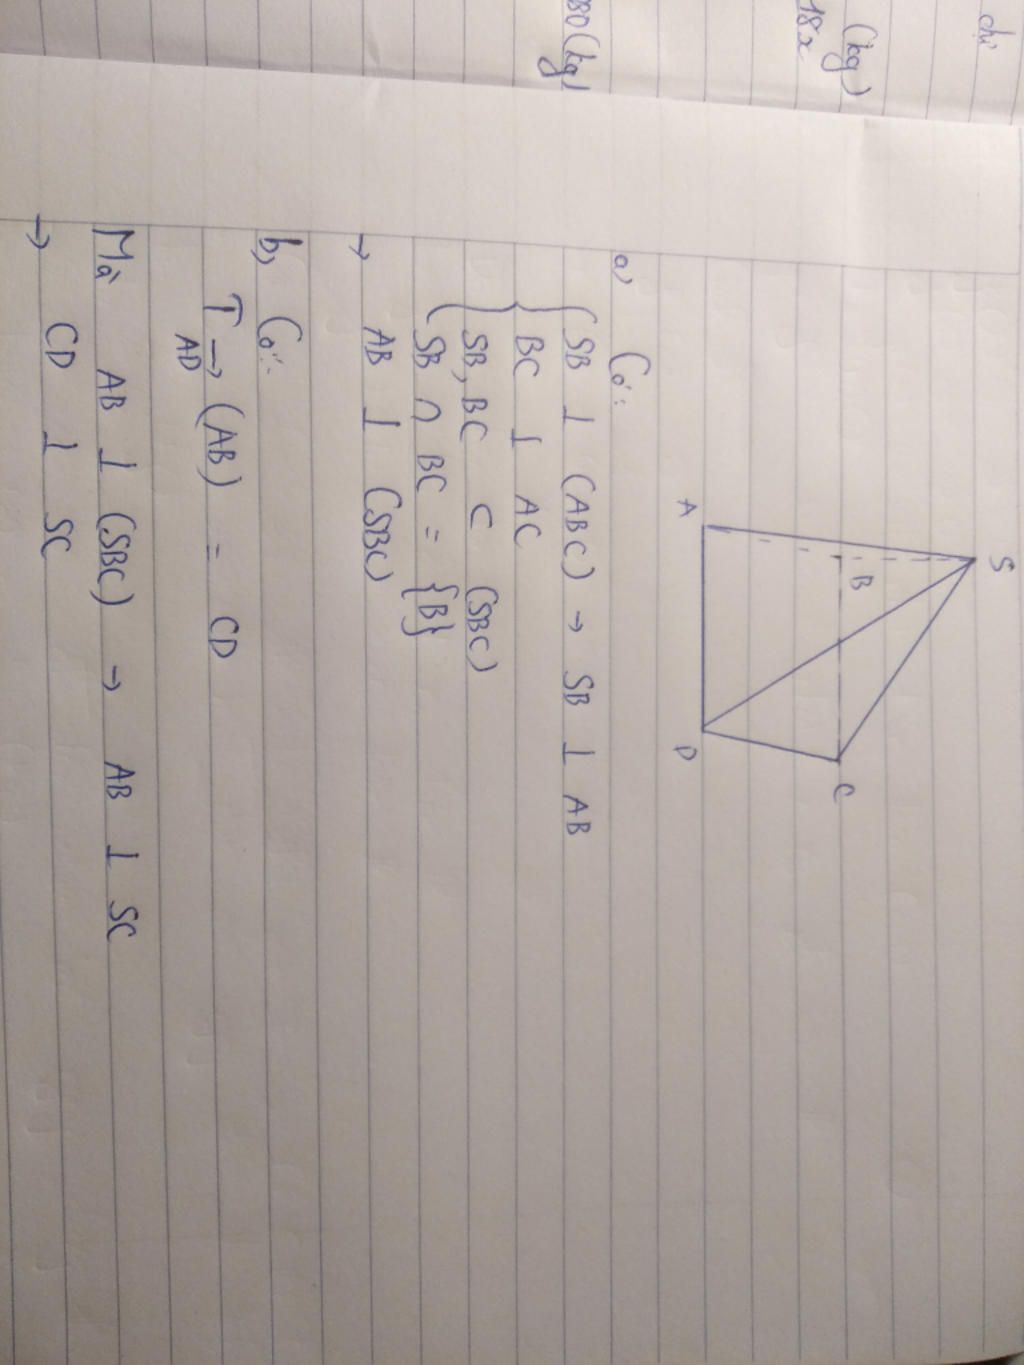 chị
(kg)
18x
80 (kg)
S
B
C
A
D
a) Có:
{ SB ⊥ (ABC) → SB ⊥ AB
BC ⊥ AC
SB, BC ⊂ (SBC)
SB ∩ BC = {B}
→ AB ⊥ (SBC)
b, Có:
T→AD (AB) = CD
Mà AB ⊥ (SBC) → AB ⊥ SC
→ CD ⊥ SC